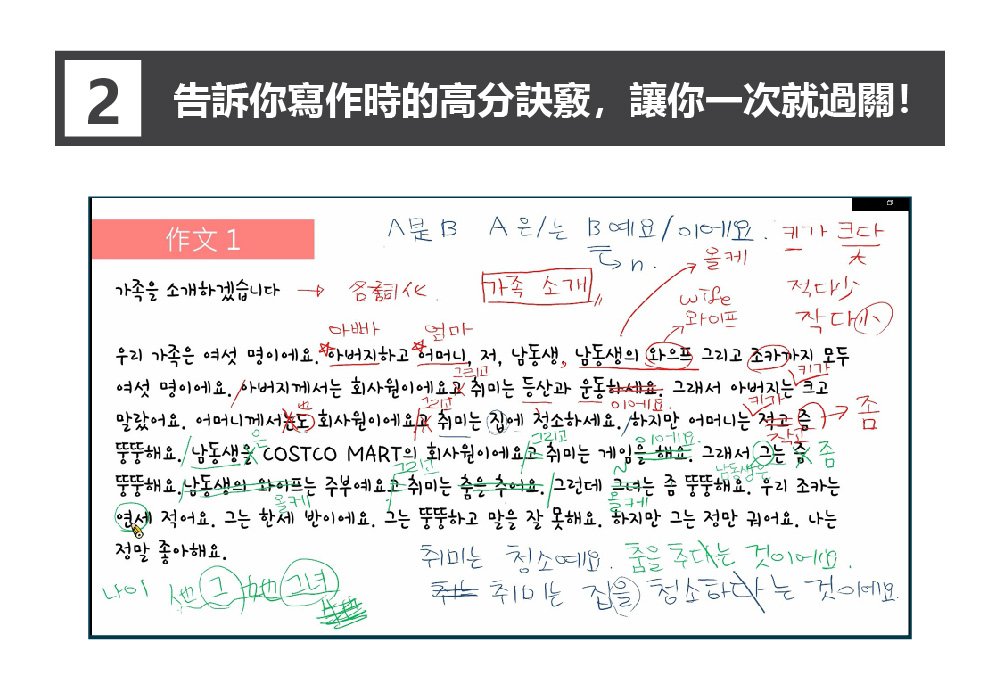 2 告訴你寫作時的高分訣竅，讓你一次就過關！
作文 1
A是B A 은/는 B예요/이에요. 키가 크다
n. 올케
가족을 소개하겠습니다 → 名詞化. 가족 소개
wife 와이프
적다 少
작다 小
아빠 엄마
우리 가족은 여섯 명이에요. 아버지하고 어머니, 저, 남동생, 남동생의 와으프 그리고 조카까지 모두
그리고 키가
여섯 명이에요. 아버지께서는 회사원이에요고 취미는 등산과 운동하세요. 그래서 아버지는 크고
그리고 이에요. 키가
말랐어요. 어머니께서는도 회사원이에요고 취미는 집에 청소하세요. 하지만 어머니는 적고 좀 → 좀
은 그리고 이에요. 작고
뚱뚱해요. 남동생을 COSTCO MART의 회사원이에요고 취미는 게임을 해요. 그래서 그는 좀 좀
그리고 남동생은
뚱뚱해요. 남동생의 와이프는 주부예요고 취미는 춤을 추어요. 그런데 그녀는 좀 뚱뚱해요. 우리 조카는
올케 올케
연세 적어요. 그는 한세 반이에요. 그는 뚱뚱하고 말을 잘 못해요. 하지만 그는 정만 귀어요. 나는
정말 좋아해요.
취미는 청소예요. 춤을 추다는 것이에요.
나이 他 그 她 그녀
취는 취미는 집을 청소하다는 것이에요.